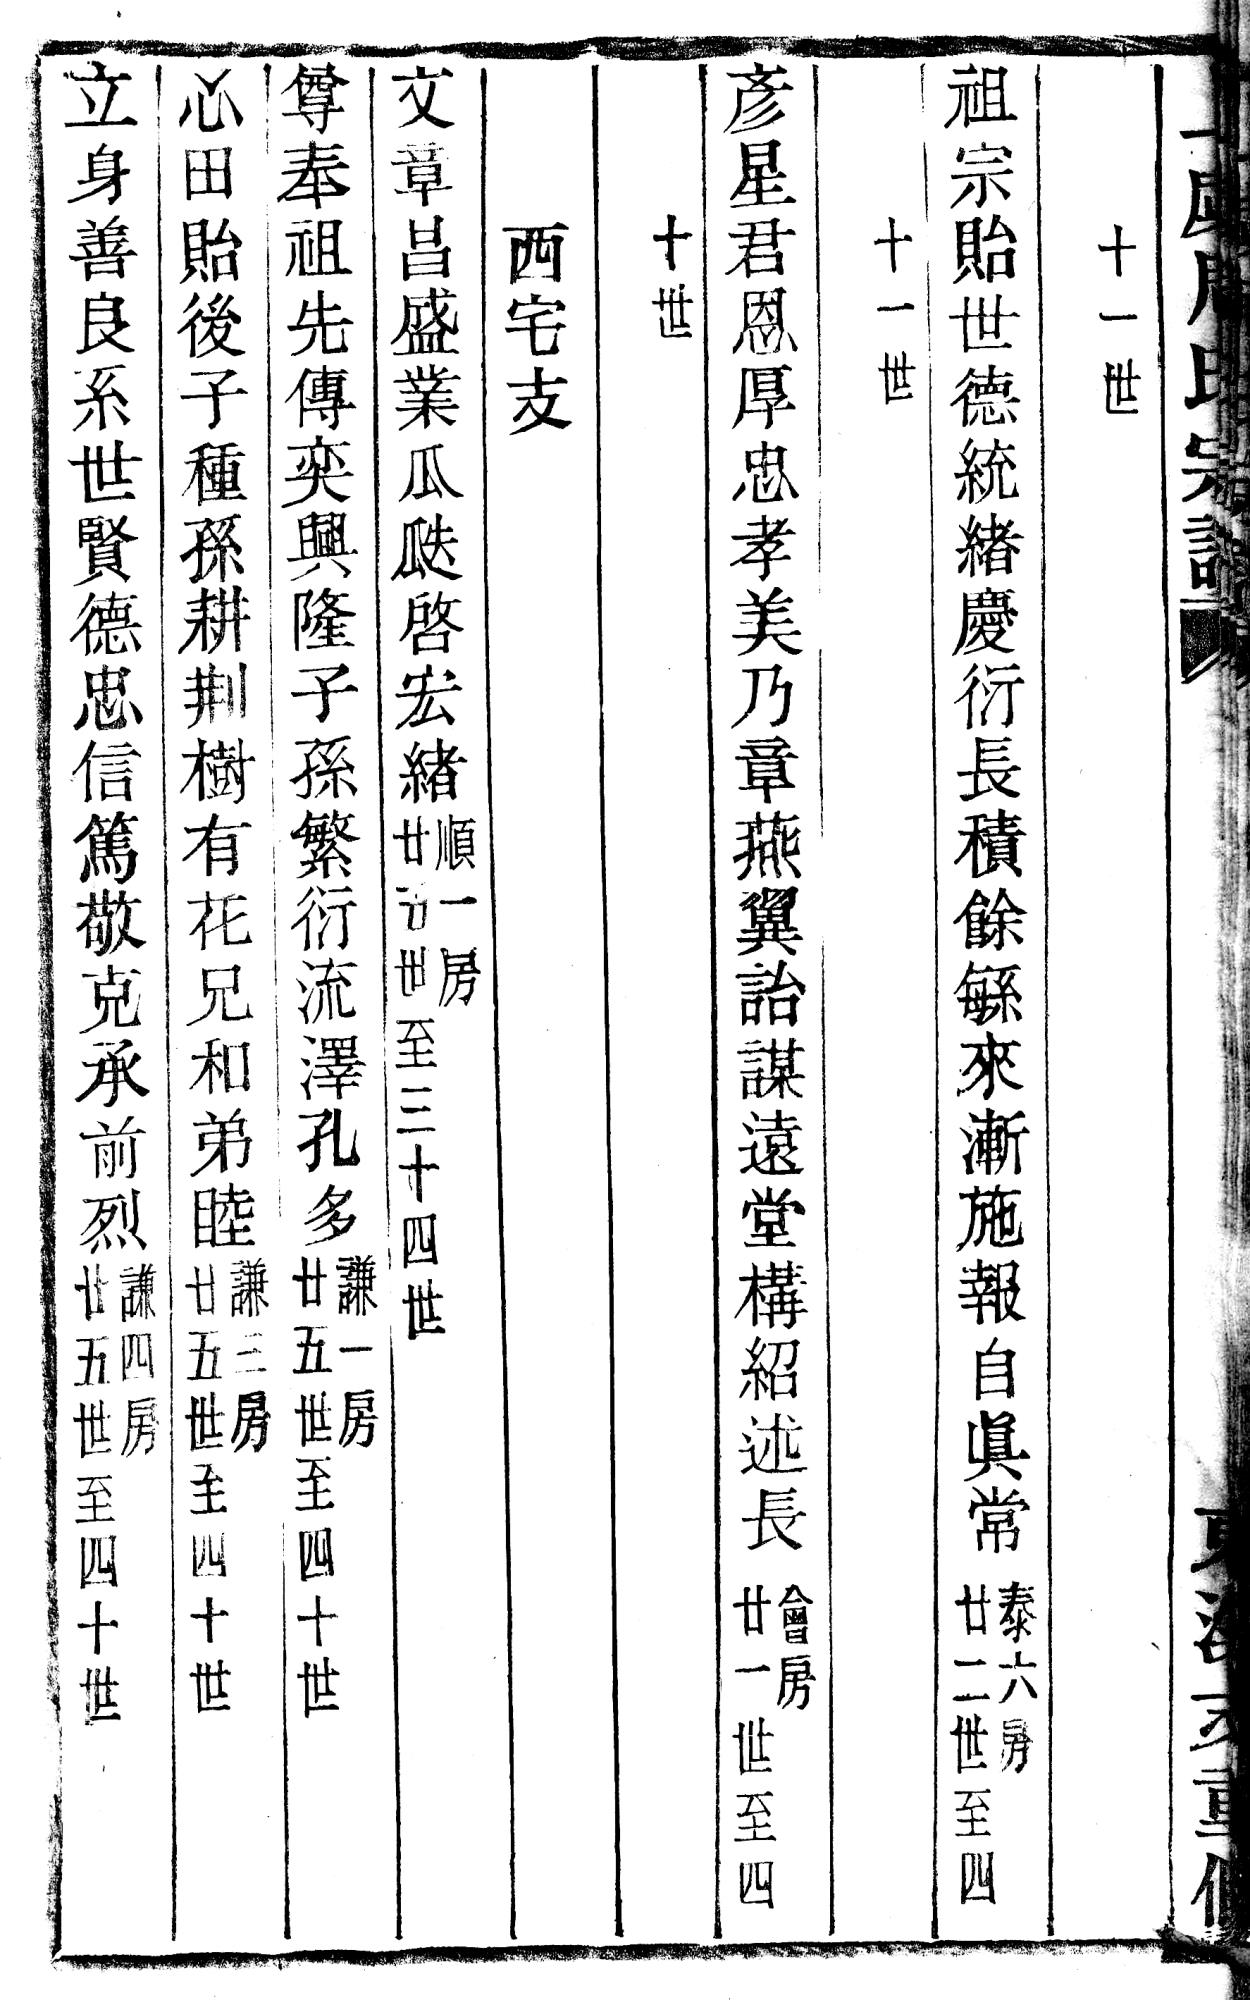 氏宗譜
重修
十一世
祖宗貽世德統緒慶衍長積餘緐來漸施報自眞常
泰六房
廿二世至四
十一世
彥星君恩厚忠孝美乃章燕翼詒謀遠堂構紹述長
會房
廿一世至四
十世
西宅支
文章昌盛業瓜瓞啓宏緒
順一房
廿五世至三十四世
尊奉祖先傳奕興隆子孫繁衍流澤孔多
謙一房
廿五世至四十世
心田貽後子種孫耕荆樹有花兄和弟睦
謙三房
廿五世至四十世
立身善良系世賢德忠信篤敬克承前烈
謙四房
廿五世至四十世